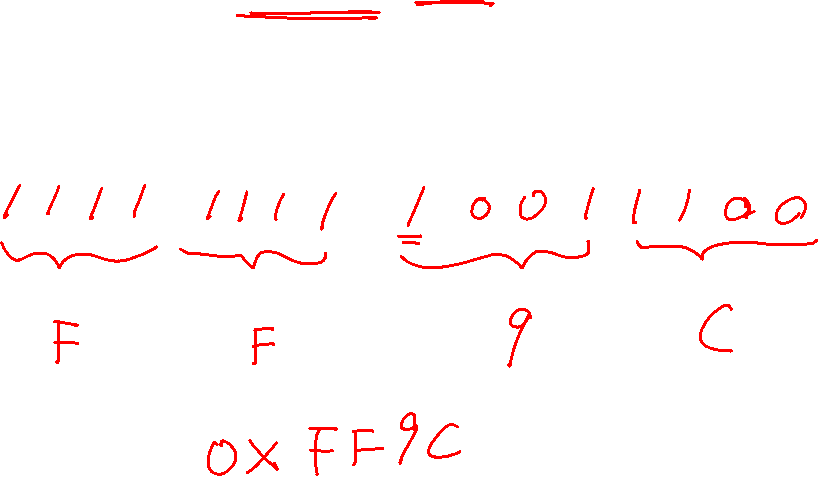 1111 1111 1001 1100
F F 9 C
0xFF9C